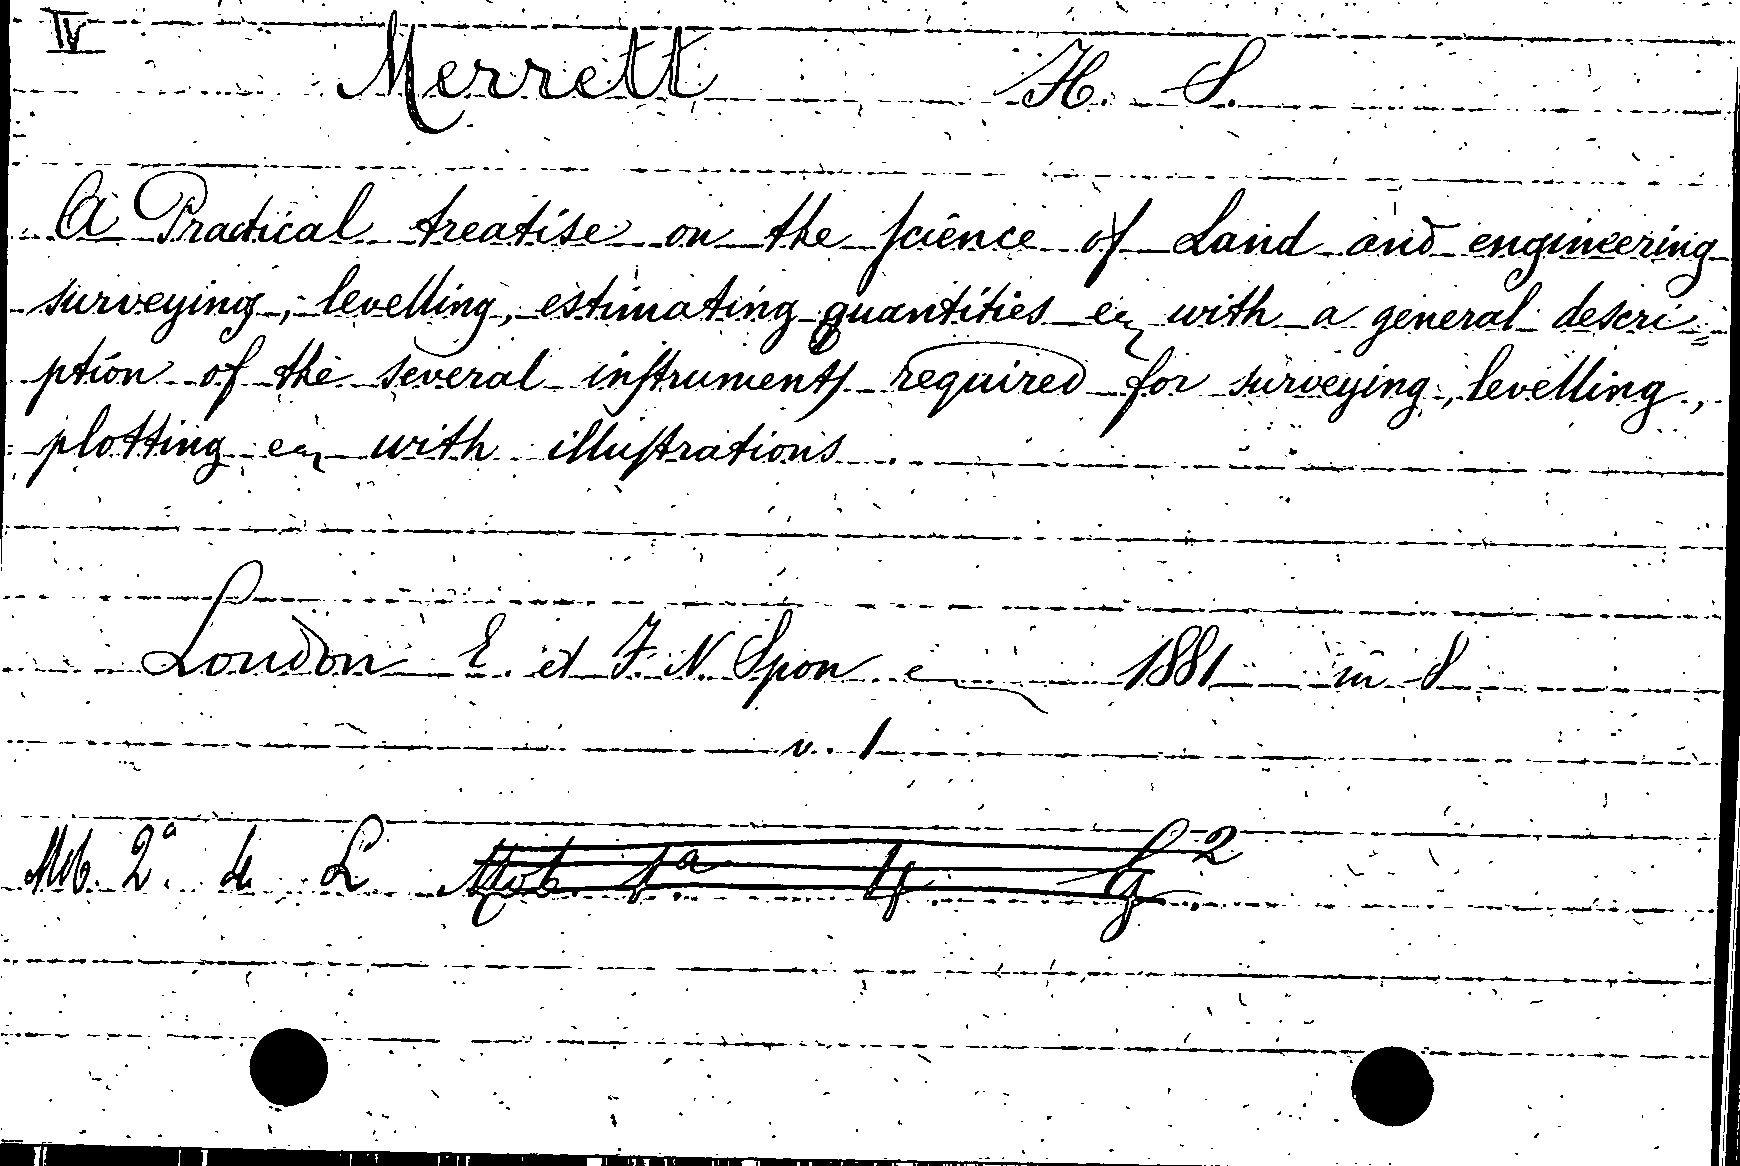 IV
Merrett H. S.
A Practical treatise on the science of Land and engineering
surveying, levelling, estimating quantities ec, with a general descri=
ption of the several instruments required for surveying, levelling,
plotting ec, with illustrations.
London E. et F. N. Spon 1881 in 8
v. 1
Mob. 2ª. 4. L Mob. 1.ª 4